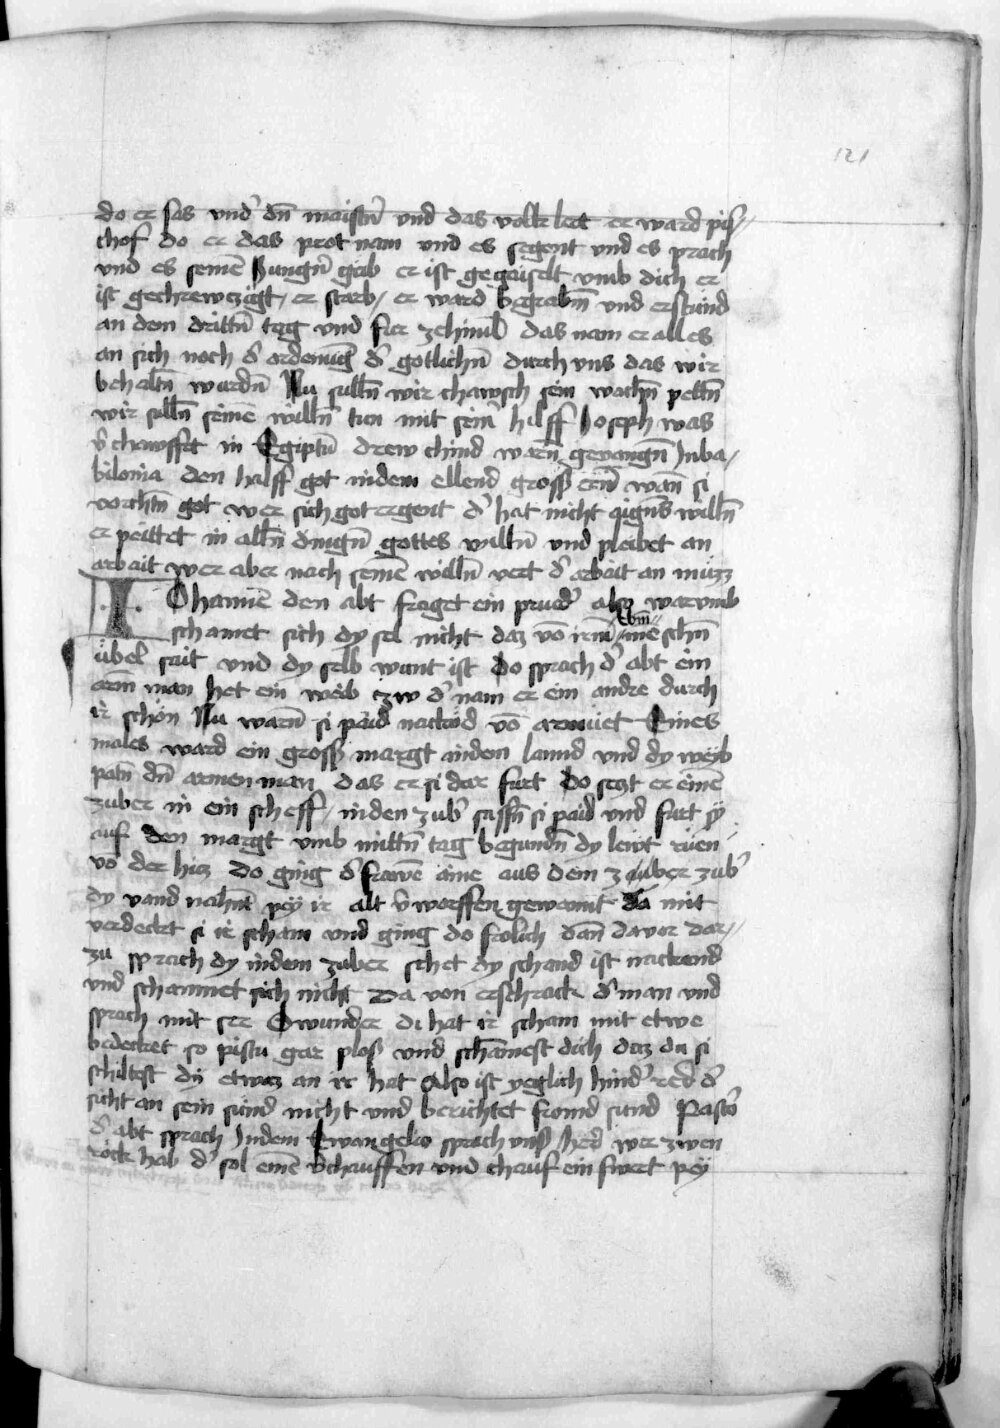 121
do er sas vnd' dn̄ maistn̄ vnd das volk lert er ward pis/
chof do er das prot nam vnd es segent vnd es prach
vnd es seinē Jungn̄ gab er ist gegaiselt vmb dich er
ist gechrewczigt / er starb / er ward begrabm̄ vnd erstuind
an dem drittn̄ tag vnd fur ze himl das nam er alles
an sich noch d' ordenu̅g d' gotlichn̄ durch vns das wir
behaltn̄ wurdn̄ Nu sulln̄ wir chawsch sein wachn̄ pettn̄
wir sulln̄ seinē willn̄ tun mit sein' hilff Joseph was
v'chawfft in Egiptū drew chind warn̄ gevangn̄ Jnba/
bilonia den halff got indem ellend gross ern̄ wan̄ si
vorchtn̄ got wer sich got ergent d' hat nicht aigns willn̄
er peittet in alln̄ dingn̄ gottes willn̄ vnd pleibet an
arbait wer aber nach seinē willn̄ vert d' arbait an muzz
Johannē den abt fraget ein prued' also warvmb
schamet sich dy sel nicht daz vō irm̄ / ebm̄ mēschn̄
übel sait vnd dy selb wunt ist do sprach d' abt ein
arm̄ man het ein weib zw d' nam er ein andre durch
ir schön Nu warn̄ si paid nackēd vō armüet Eines
males ward ein gross margt indem lannd vnd dy weib
patn̄ dn̄ armen man das er si dar furt do seczt er einē
zuber in ein scheff / inden zub' sassn̄ si paid vnd furt sÿ
auf den margt vmb mittn̄ tag begundn̄ dy lewt rüen
vō der hicz do ging d' frawē aine aus dem zuber zub'
dy vand nahnt pey ir alt v'worffen gewannt da mit
verdeckt si ir scham vnd ging do frolich dan̄ davor dar/
zu sprach dy indem zuber sehet dy schand ist nackend
vnd schammet sich nicht Da von erschrack d' man vnd
sprach mit ser O wunder di hat ir scham mit etwe
bedecket so pistu gar plos vnd schāmest dich daz du si
schiltest dÿ etwaz an ir hat Also ist yeglich hind'red d'
sicht an sein sünd nicht vnd berichtet fromd sund Pasto'
d' abt sprach Jndem Ewangelio sprach vns' her' wer zwen
röck hab d' sol einē v'chauffen vnd chauf ein swert pey